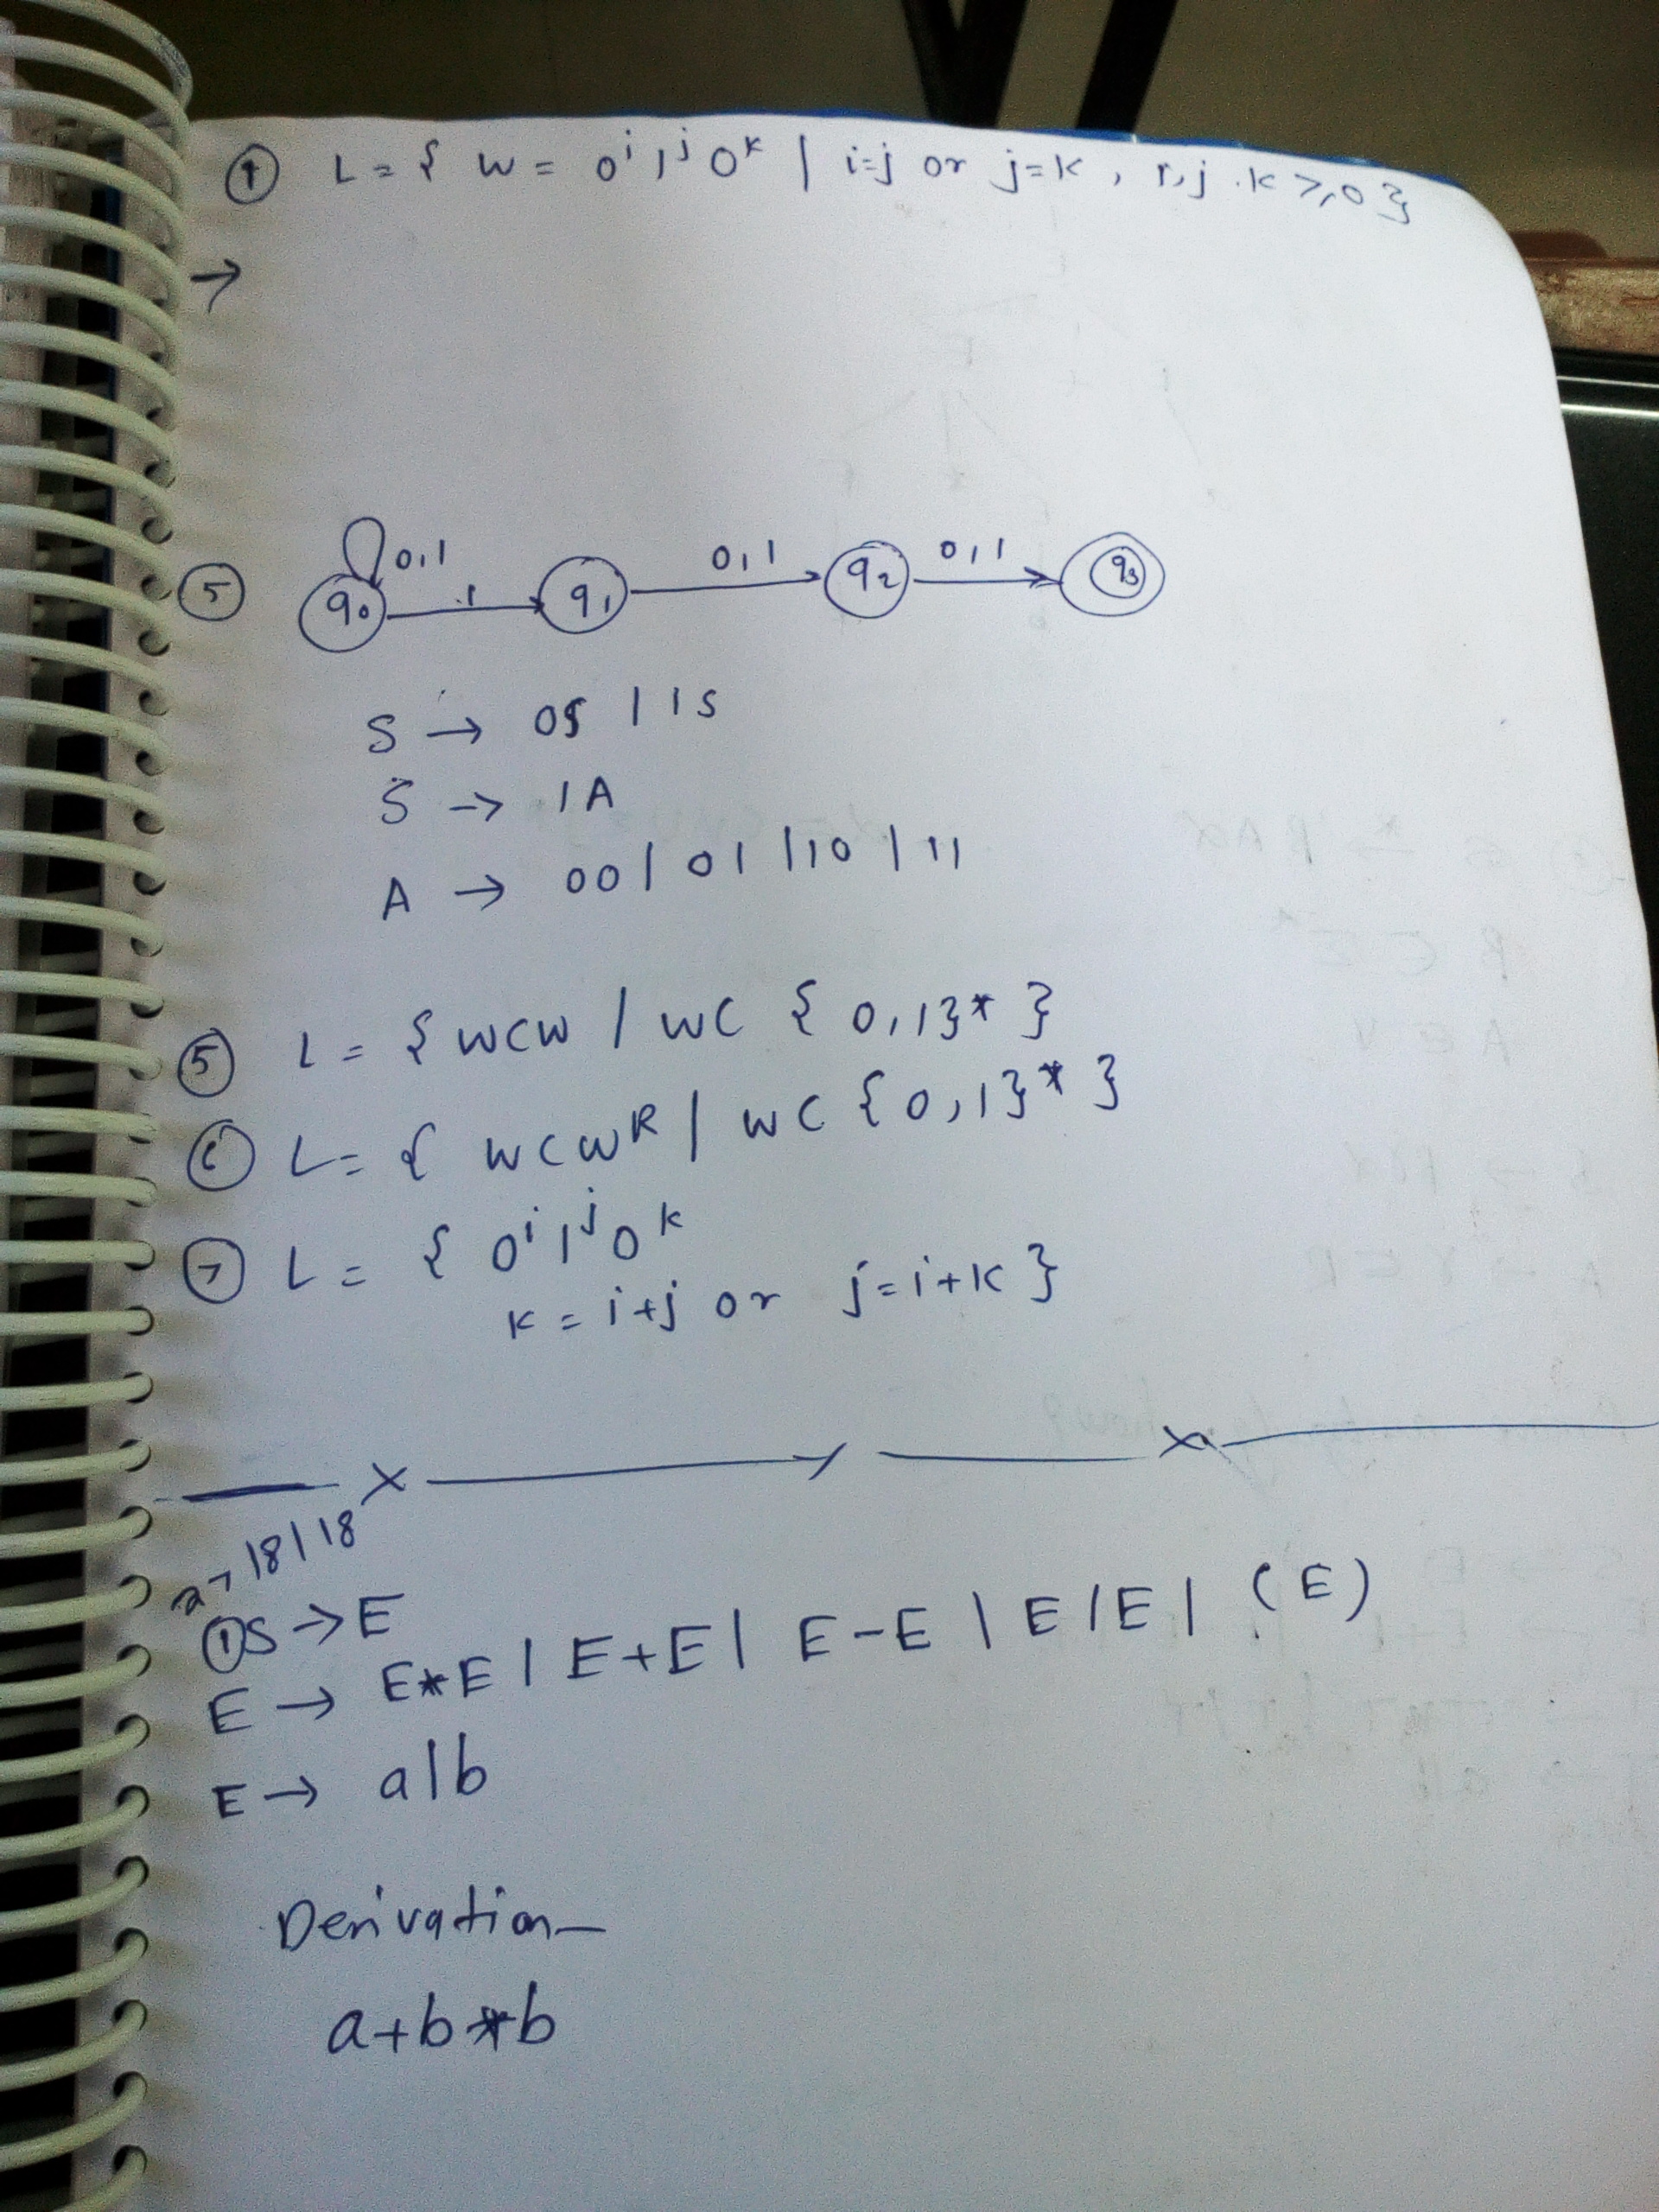 ④ L = { w = 0ⁱ1ʲ0ᵏ | i=j or j=k , i,j.k ≥ 0 }
→
⑤ q₀ 0,1 1 q₁ 0,1 q₂ 0,1 q₃
S → 0S | 1S
S → 1A
A → 00 | 01 | 10 | 11
⑤ L = { wcw / wC { 0,1}* }
⑥ L = { wcwᴿ / wC {0,1}* }
⑦ L = { 0ⁱ1ʲ0ᵏ
k = i+j or j=i+k }
18/18
① S → E
E → E*E | E+E | E-E | E/E | (E)
E → a|b
Derivation -
a+b*b